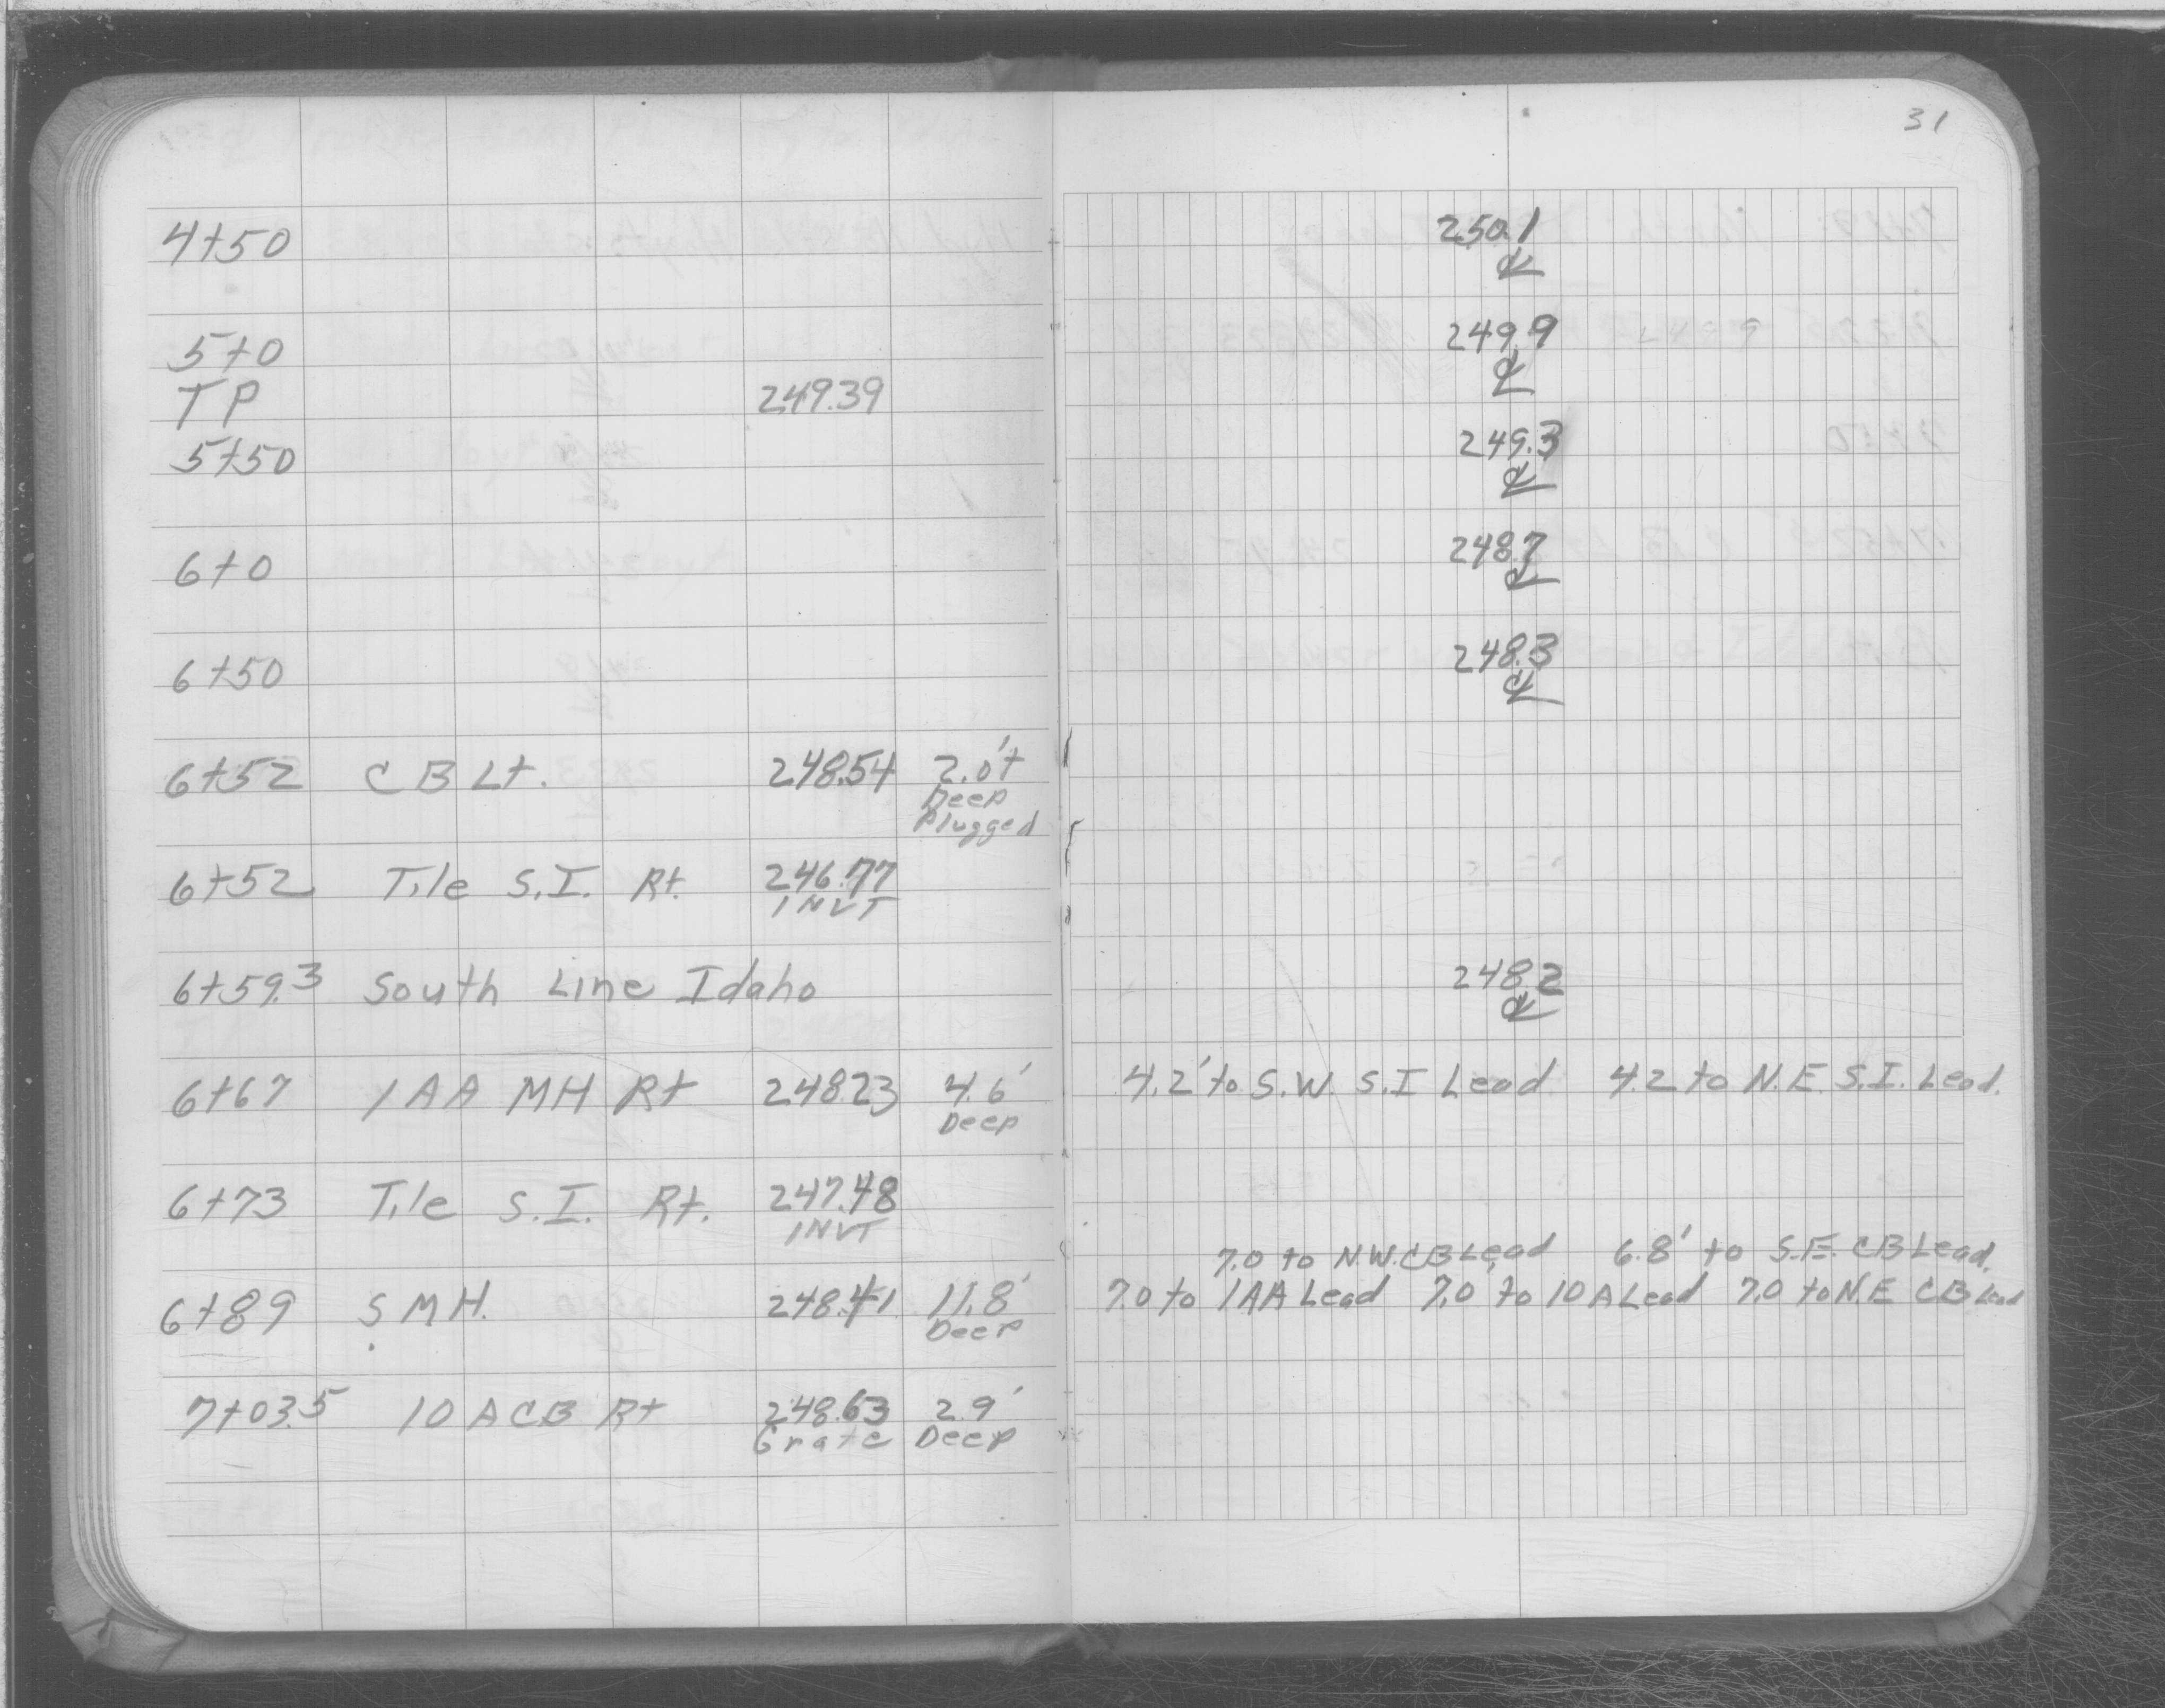 31
4+50 250.1
℄
5+0 249.9
℄
TP 249.39
5+50 249.3
℄
6+0 248.7
℄
6+50 248.3
℄
6+52 CB Lt. 248.54 2.0'±
Deep
Plugged
6+52 Tile S.I. Rt. 246.77
INVT
6+59.3 South Line Idaho 248.2
℄
6+67 1AA MH Rt 248.23 4.6' 4.2' to S.W. S.I Lead 4.2 to N.E. S.I. Lead.
Deep
6+73 Tile S.I. Rt. 247.48
INVT
7.0 to N.W. CB Lead 6.8' to S.E. CB Lead.
6+89 SMH. 248.41 11.8' 7.0 to 1AA Lead 7.0 to 10A Lead 7.0 to N.E CB Lead
Deep
7+03.5 10A CB Rt 248.63 2.9'
Grate Deep